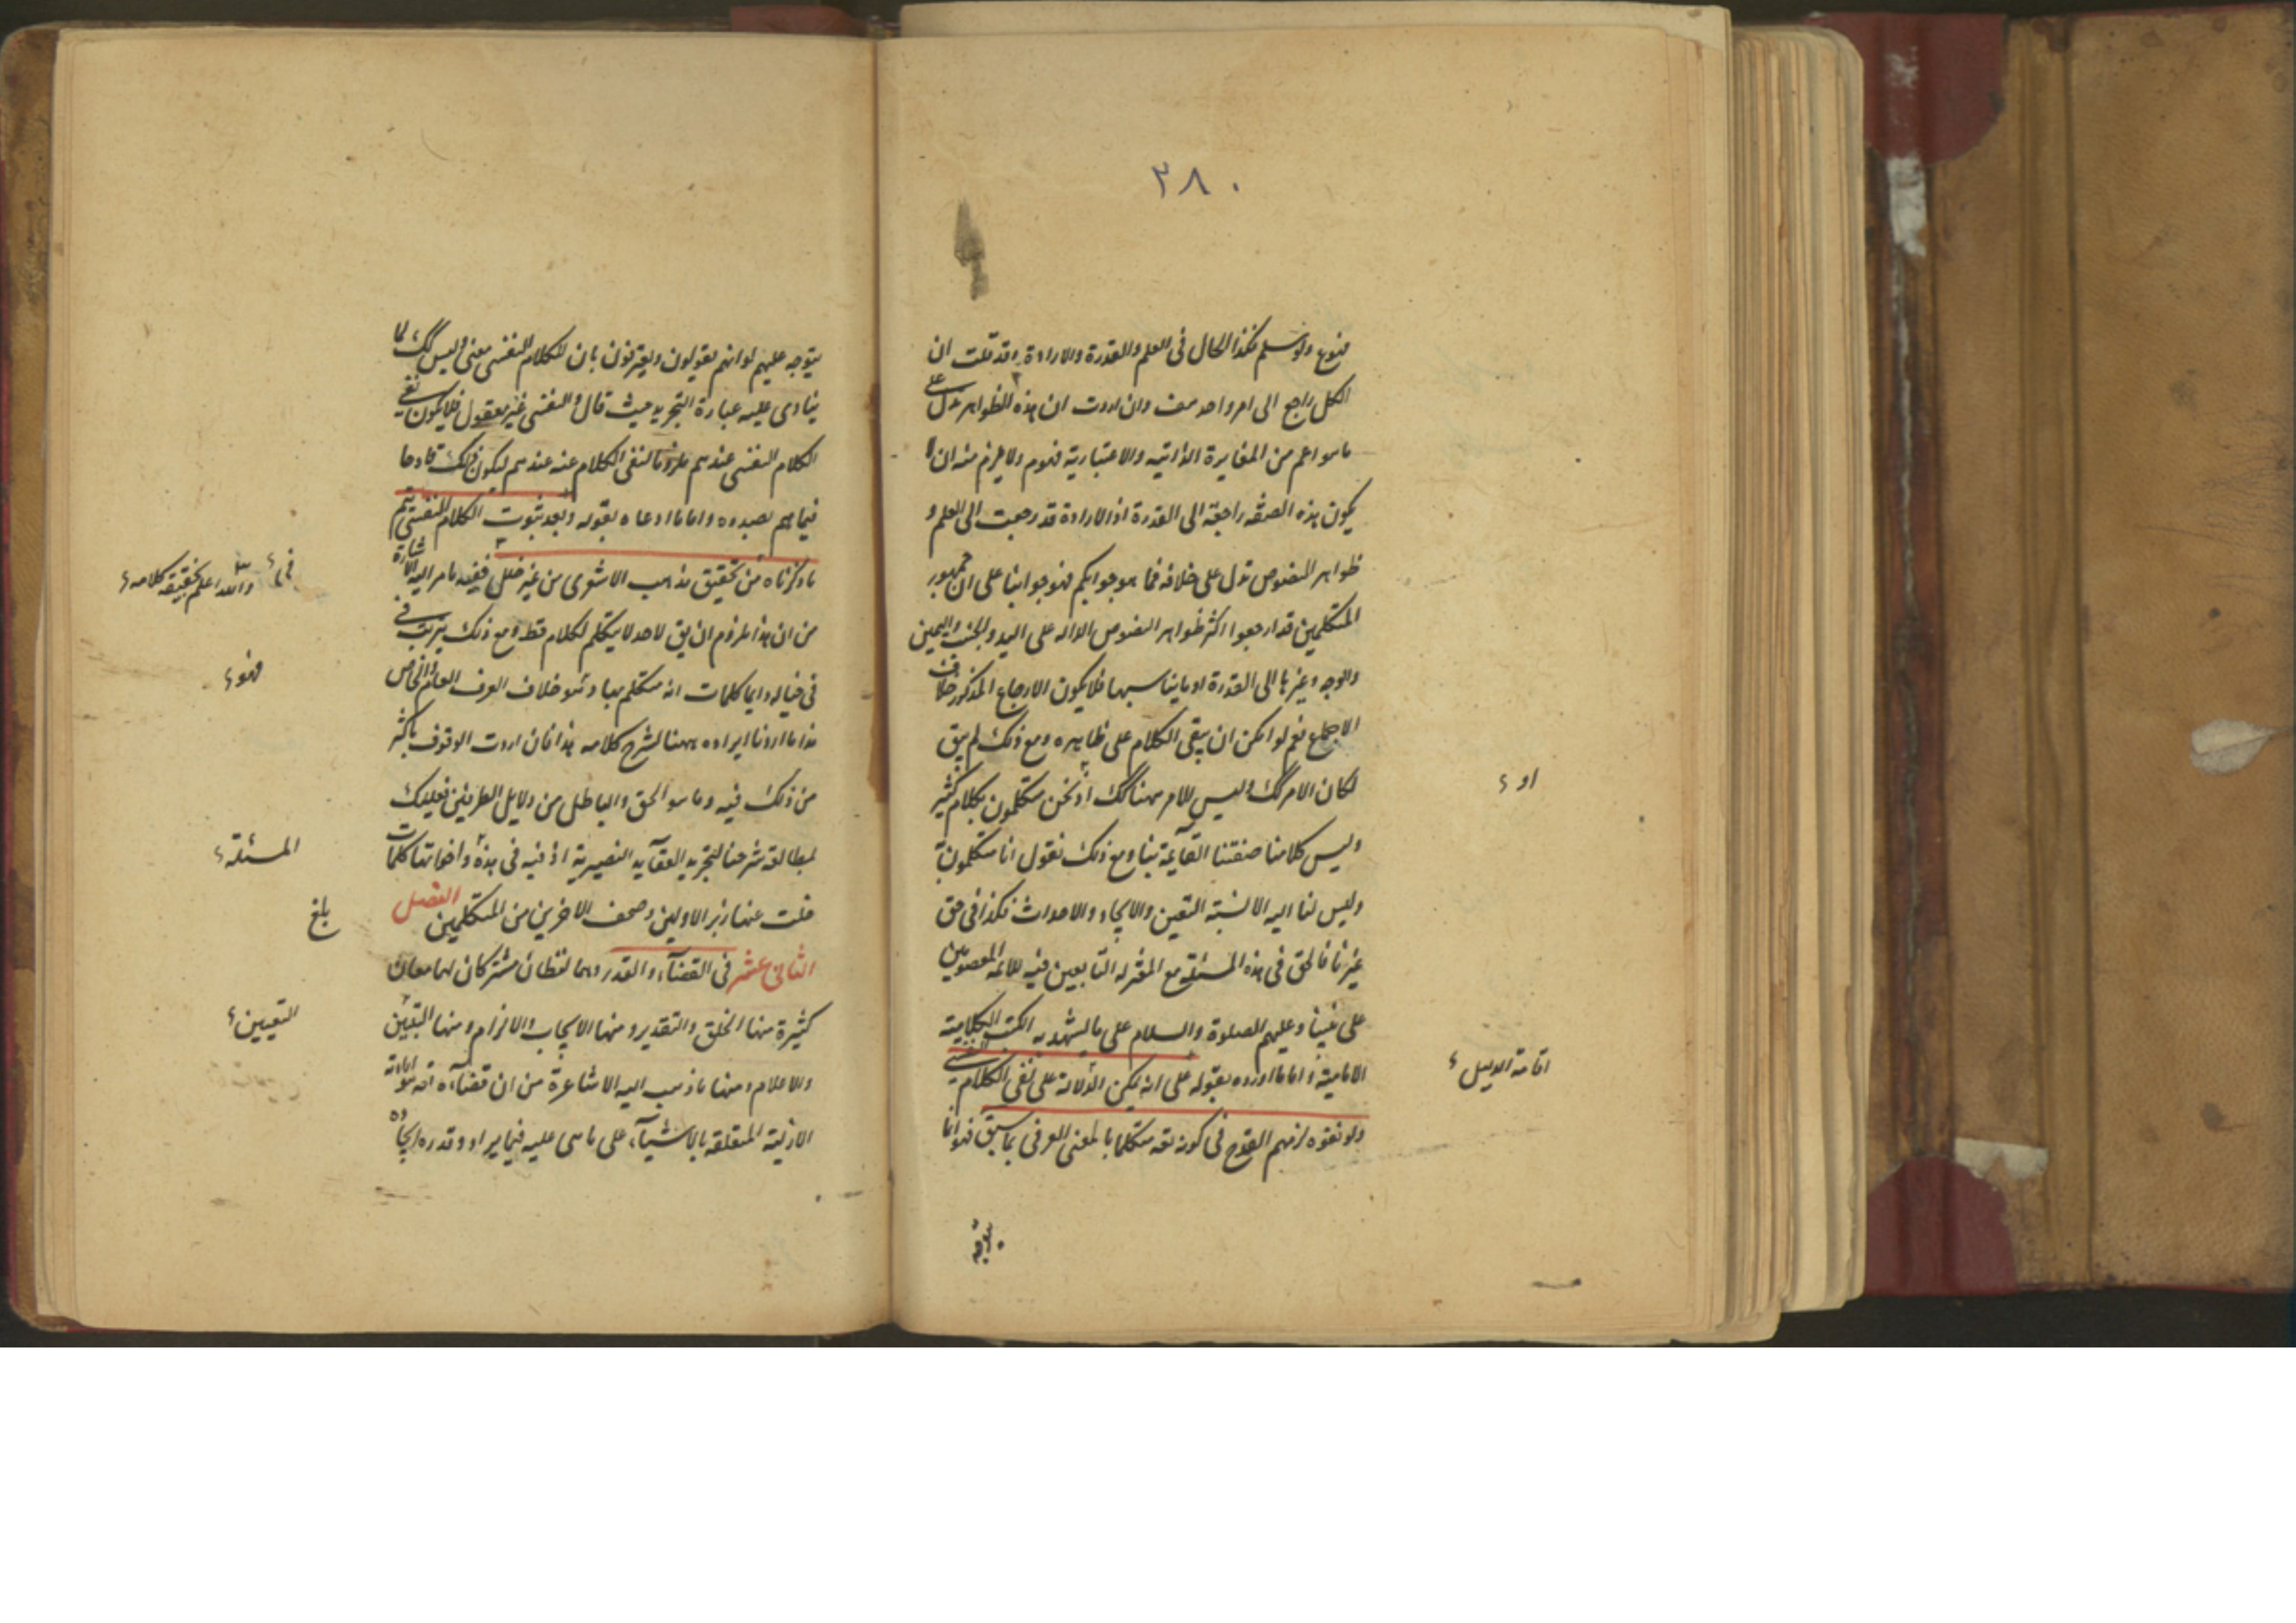 ٣٨٠
ممنوع ولو سلم فكذا الحال فى العلم والقدرة والارادة وقد قلت ان
الكل راجع الى امر واحد وان اردت ان هذه الظواهر تدل على
ما هو اعم من المغايرة الذاتيه والاعتبارية فنعم ولا يلزم منه ان لا
يكون هذه الصفة راجعة الى القدرة اذ الارادة قد رجعت الى العلم و
ظواهر النصوص تدل على خلافه فما هو جوابكم فهو جوابنا على ان جمهور
المتكلمين قد ارجعوا اكثر ظواهر النصوص الداله على اليد والجنب واليمين
والوجه وغيرها الى القدرة او ما يناسبها فلا يكون الارجاع المذكور خلاف
الاجماع نعم لو امكن ان يبقى الكلام على ظاهره ومع ذلك لم يبق
لكان الامر كك وليس الامر ههنا كك اذ نحن متكلمون بكلام كثير
او
وليس كلامنا صفتنا القايمة بنا ومع ذلك نقول انا متكلمون به
وليس لنا اليه الا نسبة التعين والايجاد والاحداث فكذا فى حق
غيرنا فالحق فى هذه المسئلة مع المعتزله التابعين فيه للائمة المعصومين
على نبينا وعليهم الصلوة والسلام على ما يشهد به الكتب الكلامية
الامامية واما ما اورده بقوله على انه يمكن الدلالة على نفى الكلام النفسى
اقامة الدليل
ولو نفوه لزمهم القدح فى كونه تعه متكلما بالمعنى العرفى بما سبق فهو انما
يتوجه
يتوجه عليهم لو انهم يقولون ويعترفون بان للكلام النفسى معنى وليس كك لما
ينادى عليه عبارة التجريد حيث قال والنفسى غير معقول فلا يكون نفى
الكلام النفسى عندهم ملزوما لنفى الكلام عنه عندهم ليكون ذلك قادحا
فيما هم بصدده واما ما ادعاه بقوله وبعد ثبوت الكلام النفسى يتم
ما ذكرناه من تحقيق مذهب الاشعرى من غير خلل ففيه ما مر اليه الاشارة
فى والله اعلم بحقيقة كلامه
من ان هذا ملزوم ان يق لاحد لا يتكلم بكلام قط ومع ذلك يترتب فى
فى خياله دايما كلمات انه متكلم بها وهو خلاف العرف العام والخاص
فهو
هذا ما اردنا ايراده ههنا لشرح كلامه هذا فان اردت الوقوف باكثر
من ذلك فيه وما هو الحق والباطل من دلايل الطرفين فعليك
بمطالعة شرحنا لتجريد العقايد النصيرية اذ فيه فى هذه واخواتها كلمات
المسئلة
خلت عنها زبر الاولين وصحف الاخرين من المتكلمين الفصل
بلغ
الثانى عشر فى القضاء والقدر وهما لفظان مشتركان لهما معان
كثيرة منها الخلق والتقدير ومنها الايجاب والالزام ومنها التبيين
التعيين
والاعلام ومنها ما ذهب اليه الاشاعرة من ان قضاءه تعه هو ارادته
الازلية المتعلقه بالاشياء على ما هى عليه فيما يزال وقدره ايجاده